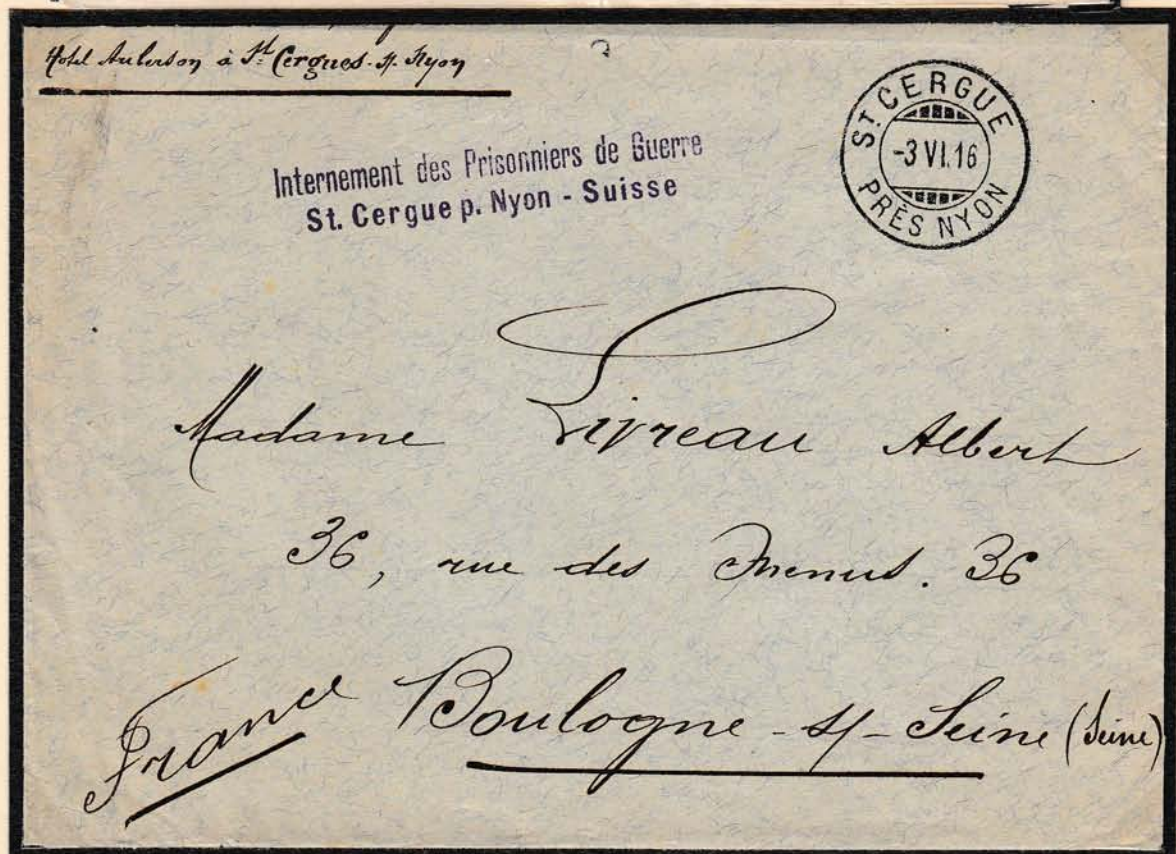 Hotel Auberson à St. Cergues s/ Nyon
Internement des Prisonniers de Guerre
St. Cergue p. Nyon - Suisse
ST. CERGUE
-3 VI.16
PRÈS NYON
Madame Livreau Albert
36, rue des Menus. 36
France Boulogne - s/ - Seine (Seine)